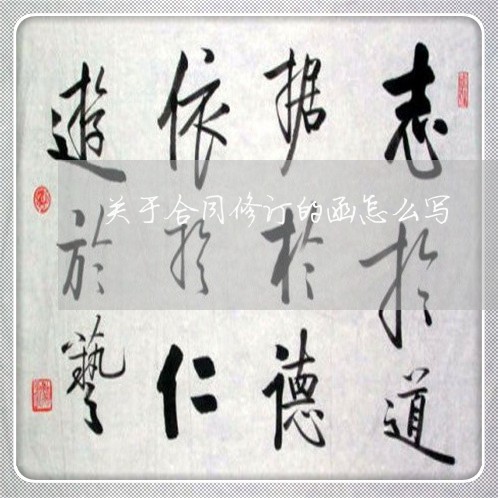 志於道
据於德
依於仁
遊於藝
关于合同修订的函怎么写